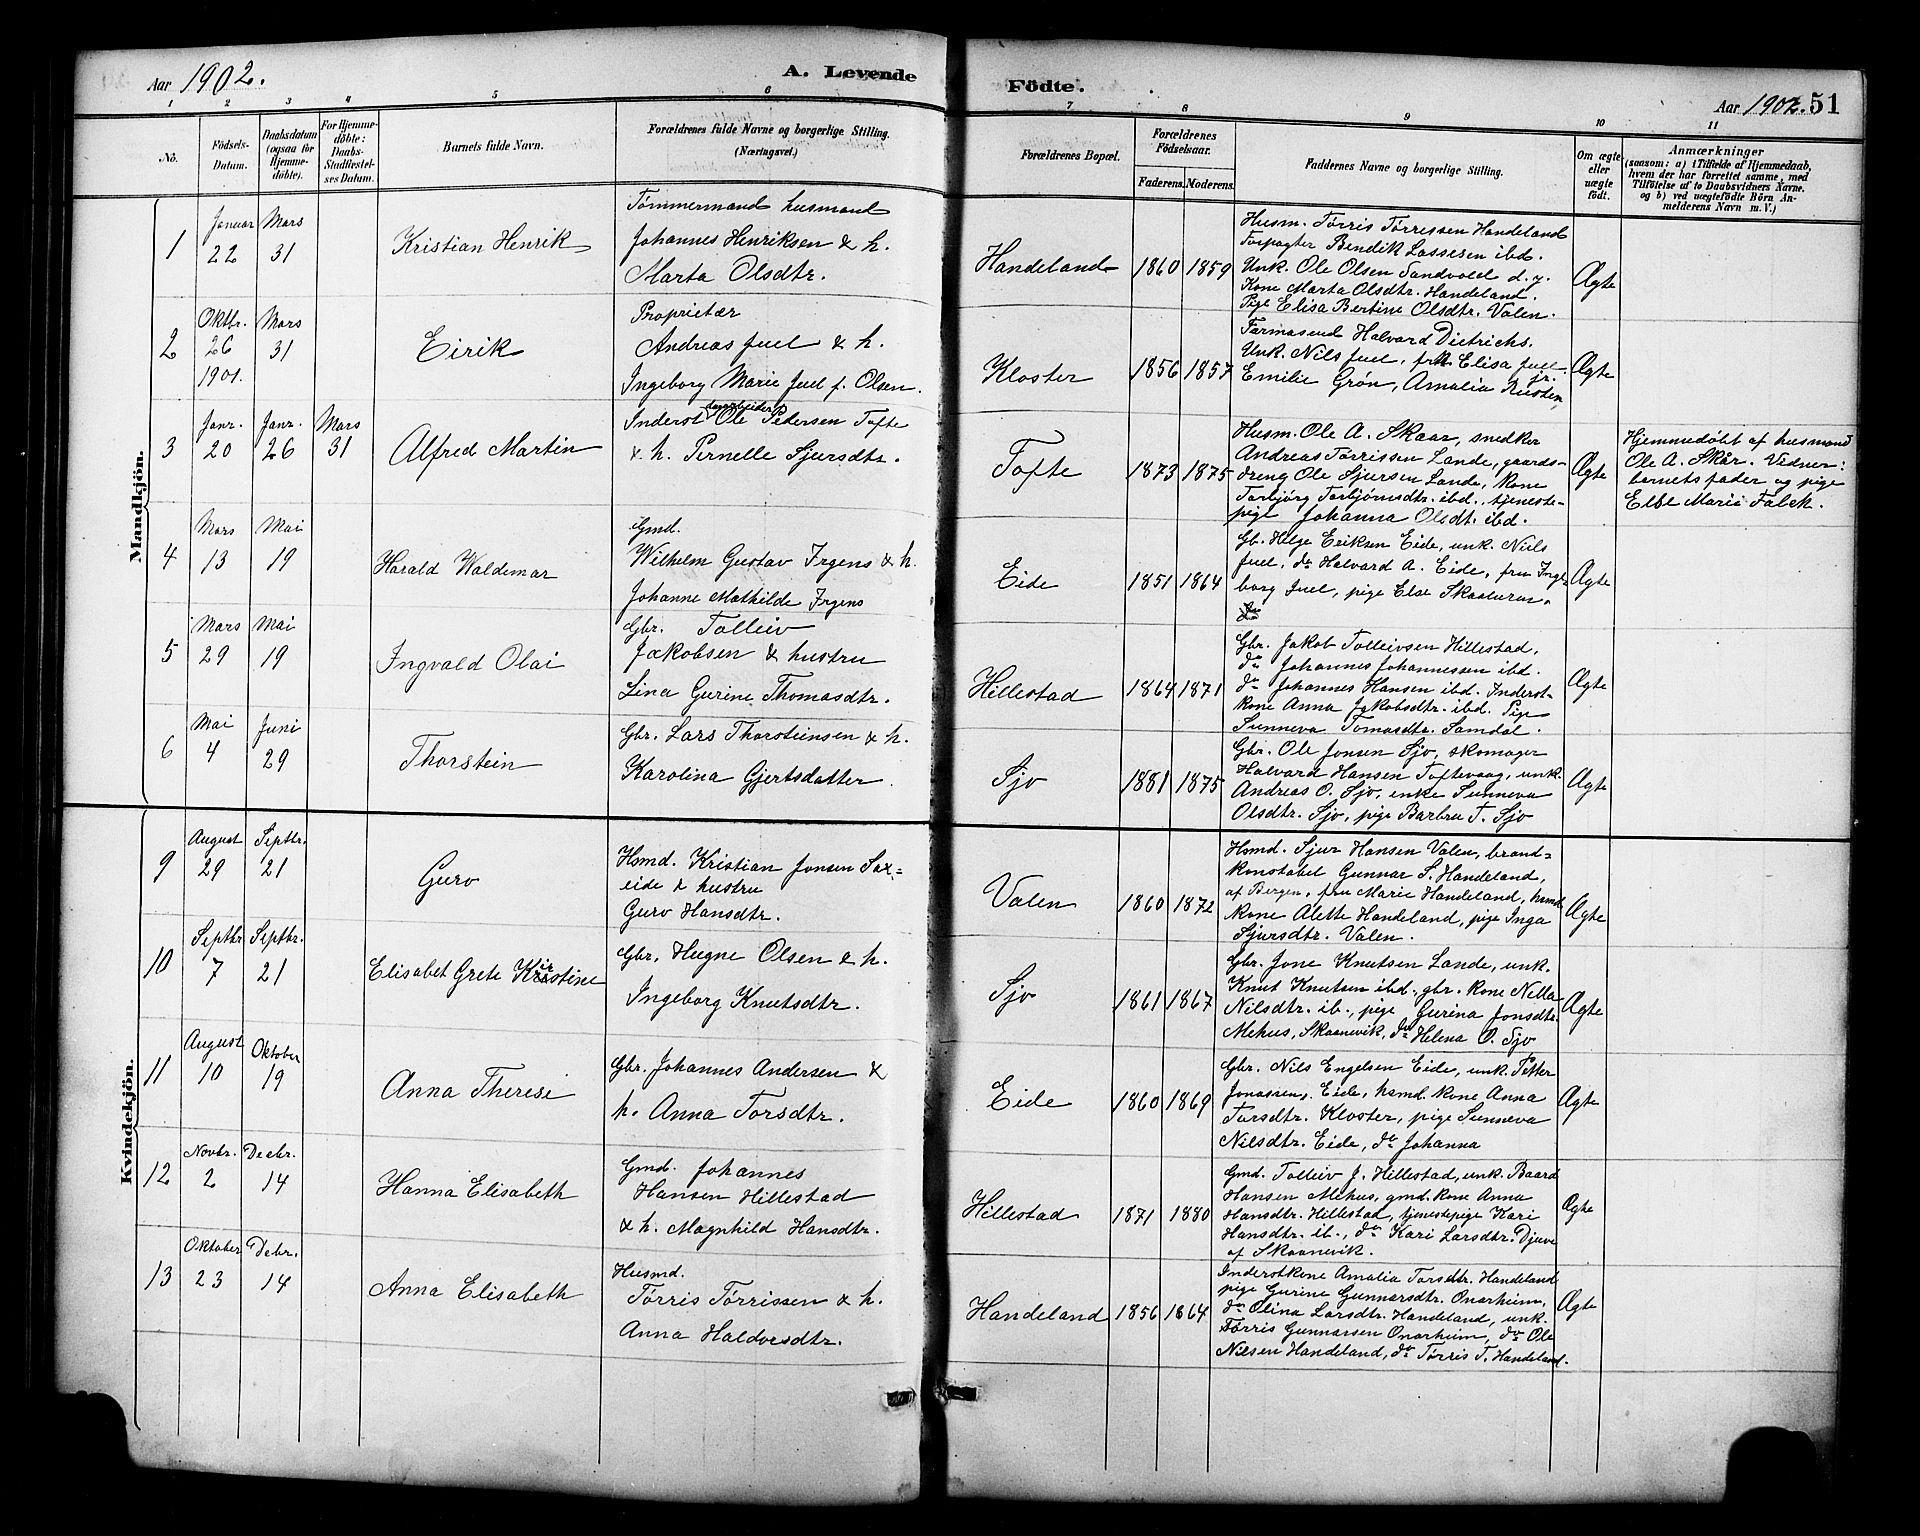 Aar 1902.
A. Levende
Födte.
Aar 1902. 51
1 2 3 4 5 6 7 8 9 10 11
No.
Födsels-
Datum.
Daabsdatum
(ogsaa for
Hjemme-
döbte).
For Hjemme-
döbte:
Daabs-
Stadfæstel-
ses Datum.
Barnets fulde Navn.
Forældrenes fulde Navne og borgerlige Stilling.
(Næringsvei.)
Forældrenes Bopæl.
Forældrenes
Födselsaar.
Faderens. Moderens.
Faddernes Navne og borgerlige Stilling.
Om ægte
eller
uægte
födt.
Anmærkninger
(saasom: a) i Tilfælde af Hjemmedaab,
hvem der har forrettet samme, med
Tilföielse af to Daabsvidners Navne.
og b) ved uægtefödte Börn An-
melderens Navn m. V.)
Mandkjön.
1
Januar
22
Mars
31
Kristian Henrik
Tømmermand husmand
Johannes Henriksen & h.
Marta Olsdtr.
Handeland
1860 1859
Husm. Tørris Tørrissen Handeland
Forpagter Bendik Lassesen ibd.
Unk. Ole Olsen Sandvold d.y.
Kone Marta Olsdtr. Handeland.
Pige Elisa Bertine Olsdtr. Valen.
Ægte
2
Oktbr.
26
1901.
Mars
31
Eirik
Proprietær
Andreas Juel & h.
Ingeborg Marie Juel f. Olsen.
Kloster
1856 1857
Farmaseud Halvard Dietrichs.
Unk. Nils Juel, frk. Elisa Juel
Emilie Grön, Amalia Rusten, jr.
Ægte
3
Janr.
20
Janr.
26
Mars
31
Alfred Martin
Inderst Ole Pedersen Tofte
& h. Pernelle Sjursdtr.
Tofte
1873 1875
Husm. Ole A. Skaar, snedker
Andreas Tørrissen Lande, gaards-
dreng Ole Sjursen Lande, kone
Torbjørg Torbjørnsdtr. ibd., tjeneste-
pige Johanna Olsdt. ibd.
Ægte
Hjemmedøbt af husmand
Ole A. Skår. Vidner:
barnets fader og pige
Else Marie Falck.
4
Mars
13
Mai
19
Harald Waldemar
Gmd.
Wilhelm Gustav Irgens & h.
Johanne Mathilde Irgens
Eide
1851 1864
Gb. Helge Eriksen Eide, unk. Niels
Juel, do Halvard A. Eide, fru Inge-
borg Juel, pige Else Skaaturun.
Ægte
5
Mars
29
Mai
19
Ingvald Olai
Gbr. Tolleiv
Jakobsen & hustru
Lina Gurine Thomasdtr.
Hillestad
1864 1871
Gbr. Jakob Tolleivsen Hillestad,
do Johannes Johannessen ibd.
do Johannes Hansen ibd. Inderst-
kone Anna Jakobsdtr. ibd. Pige
Sunneva Tomasdtr. Samdal.
Ægte
6
Mai
4
Juni
29
Thorstein
Gbr. Lars Thorsteinsen & h.
Karolina Gjertsdatter.
Sjo
1881 1875
Gbr. Ole Jonsen Sjo, skomager
Halvard Hansen Toftevaag, unk.
Andreas O. Sjo, enke Sunneva
Olsdtr. Sjo, pige Barbru T. Sjo
Ægte
Kvindekjön.
9
August
29
Septbr.
21
Guro
Hsmd. Kristian Jonsen Sax-
eide & hustru
Guro Hansdtr.
Valen
1860 1872
Hsmd. Sjur Hansen Valen, brand-
konstabel Gunnar S. Handeland,
af Bergen, fru Marie Handeland, hsmd.
kone Alette Handeland, pige Inga
Sjursdtr. Valen.
Ægte
10
Septbr.
7
Septbr.
21
Elisabet Grete Kristine
Gbr. Hugne Olsen & h.
Ingeborg Knutsdtr.
Sjo
1861 1867
Gbr. Jone Knutsen Lande, unk.
Knut Knutsen ibd., gbr. kone Nella
Nilsdtr. ib., pige Gurina Jonsdtr.
Mehus, Skaanevik, do Helena O. Sjo
Ægte
11
August
10
Oktober
19
Anna Therese
Gbr. Johannes Andersen &
h. Anna Torsdtr.
Eide
1860 1869
Gbr. Nils Engelsen Eide, unk. Petter
Jonassen, Eide, hsmd. kone Anna
Torsdtr. Kloster, pige Sunneva
Nilsdtr. Eide, do Johanna
Ægte
12
Novbr.
2
Decbr.
14
Hanna Elisabeth
Gmd. Johannes
Hansen Hillestad
& h. Magnhild Hansdtr.
Hillestad
1871 1880
Gmd. Tolleiv J. Hillestad, unk. Baard
Hansen Mehus, gmd. kone Anna
Hansdtr. Hillestad, tjenestepige Kari
Hansdtr. ib., do Kari Larsdtr. Djuve
af Skaanevik.
Ægte
13
Oktober
23
Debr.
14
Anna Elisabeth
Husmd.
Tørris Tørrissen & h.
Anna Haldorsdtr.
Handeland
1856 1864
Inderstkone Amalia Torsdtr. Handeland
pige Gurine Gunnarsdtr. Onarheim,
do Olina Larsdtr. Handeland, unk.
Tørris Gunnarsen Onarheim, do Ole
Nilsen Handeland, do Tørris T. Handeland.
Ægte